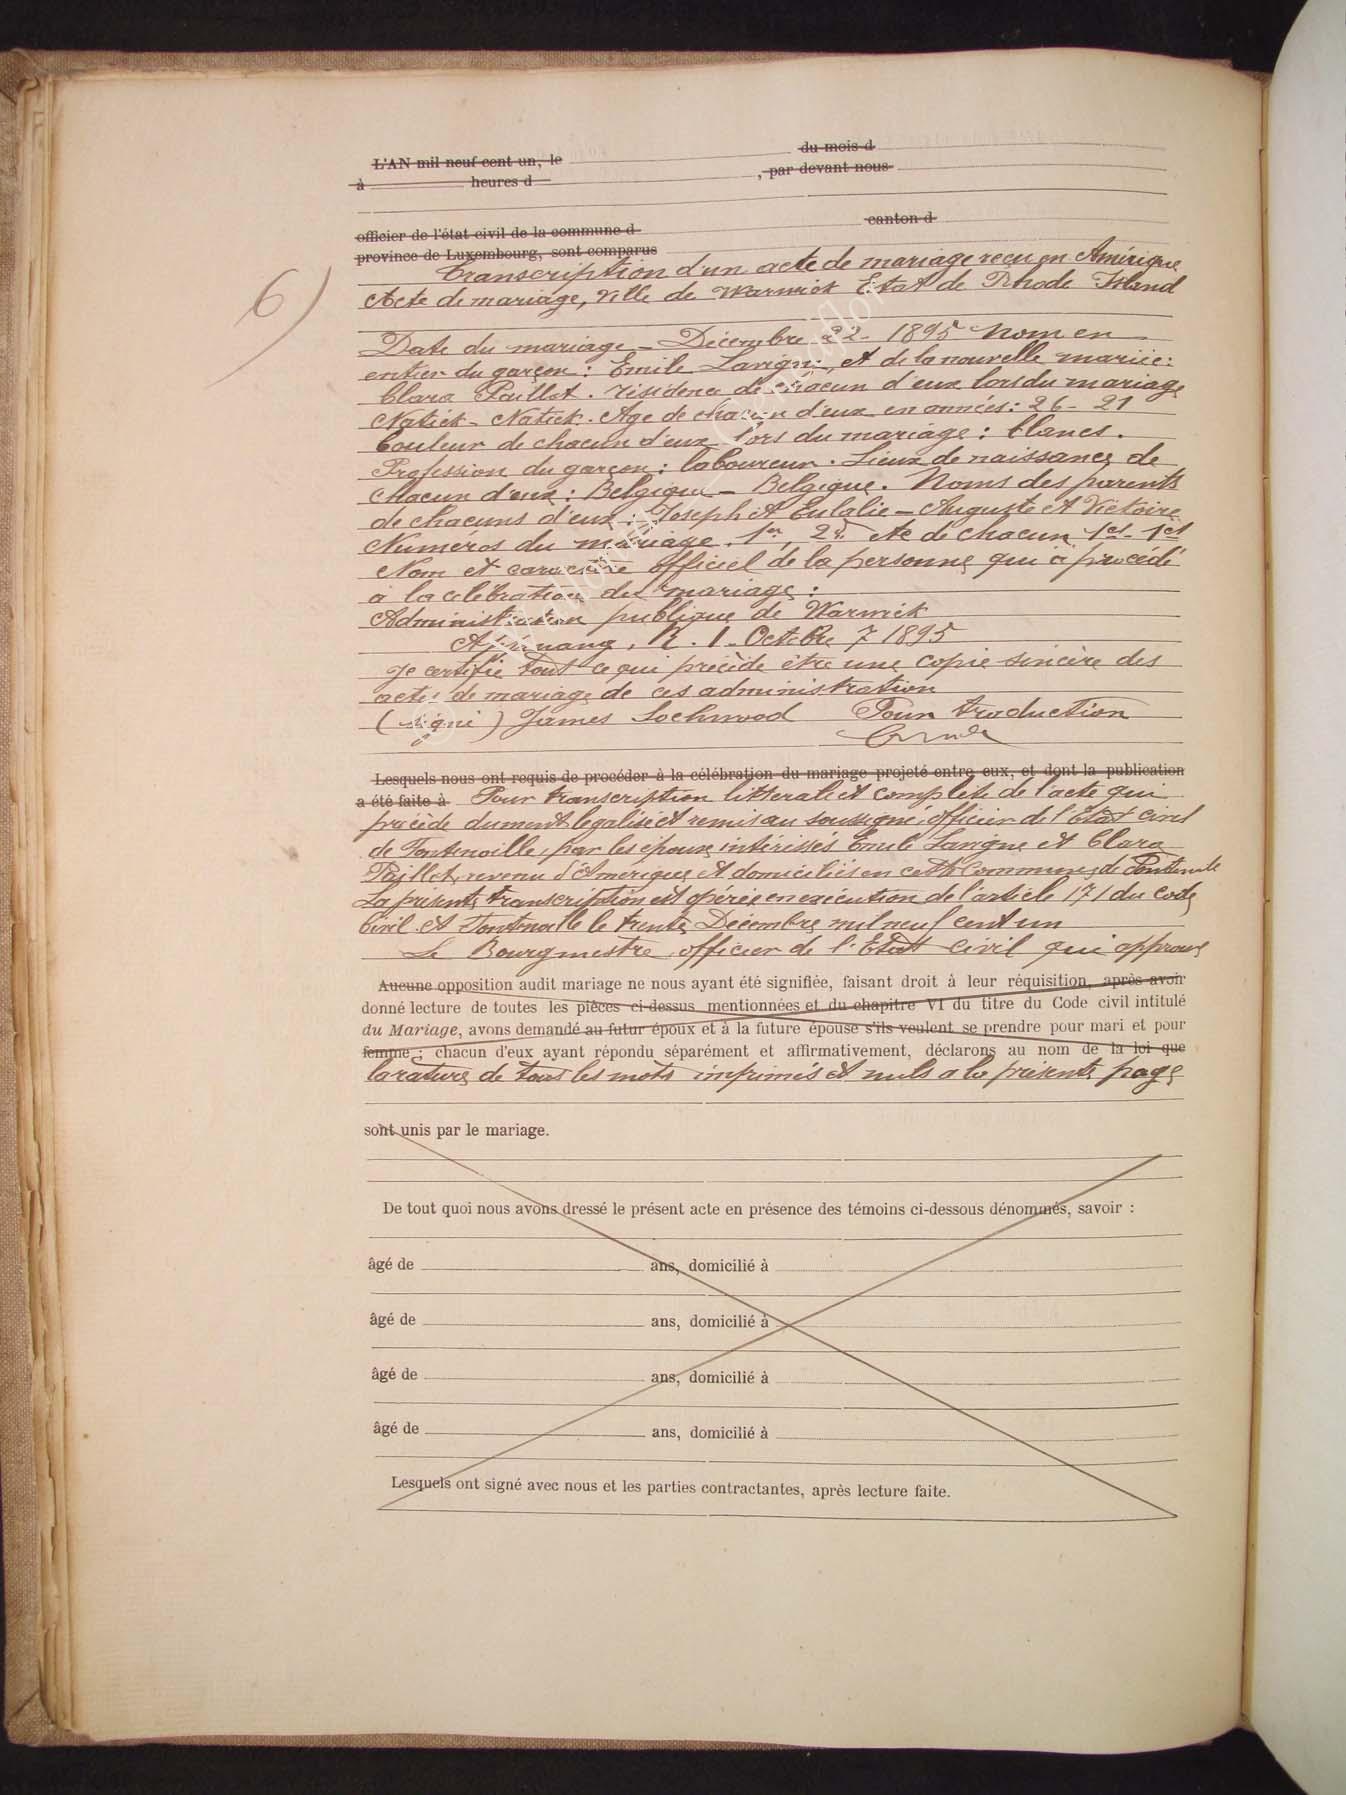 L'AN mil neuf cent un, le du mois d
à heures d , par devant nous
officier de l'état civil de la commune d canton d
province de Luxembourg, sont comparus
6) Transcription d'un acte de mariage recu en Amérique
Acte de mariage, Ville de Warwick Etat de Rhode Island
Date du mariage - Décembre 22 - 1895 Nom en
entier du garçon : Emile Lavigne, et de la nouvelle mariée :
Clara Paillot. résidence de chacun d'eux lors du mariage
Natick - Natick. Age de chacun d'eux en années : 26 - 21
Couleur de chacun d'eux lors du mariage : blancs.
Profession du garçon : laboureur. Lieux de naissance de
chacun d'eux : Belgique - Belgique. Noms des parents
de chacuns d'eux : Joseph et Eulalie - Auguste et Victoire
Numéros du mariage. 1er, 2d. etc de chacun 1er - 1er
Nom et caractère officiel de la personne qui a procédé
a la célébration du mariage :
Administration publique de Warwick
R. I. Octobre 7 1895
Je certifie tout ce qui précède être une copie sincère des
actes de mariage de ces administration
(signé) James Lochwood Pour traduction
Lesquels nous ont requis de procéder à la célébration du mariage projeté entre eux, et dont la publication
a été faite à Pour transcription littérale et complète de l'acte qui
précède dument legalisé et remis au soussigné, officier de l'Etat civil
de Fontenoille, par les epoux intéréssés Emile Lavigne et Clara
Paillot, revenu d'Amérique et domiciliés en cette Commune de Fontenoille
La présente transcription est opérée en exécution de l'article 171 du code
Civil. et Fontenoille le trente Décembre mil neuf cent un
Le Bourgmestre, officier de l'Etat Civil qui approuve
Aucune opposition audit mariage ne nous ayant été signifiée, faisant droit à leur réquisition, après avoir
donné lecture de toutes les pièces ci-dessus mentionnées et du chapitre VI du titre du Code civil intitulé
du Mariage, avons demandé au futur époux et à la future épouse s'ils veulent se prendre pour mari et pour
femme ; chacun d'eux ayant répondu séparément et affirmativement, déclarons au nom de la loi que
la rature de tous les mots imprimés et nuls a la présente page
sont unis par le mariage.
De tout quoi nous avons dressé le présent acte en présence des témoins ci-dessous dénommés, savoir :
âgé de ans, domicilié à
âgé de ans, domicilié à
âgé de ans, domicilié à
âgé de ans, domicilié à
Lesquels ont signé avec nous et les parties contractantes, après lecture faite.